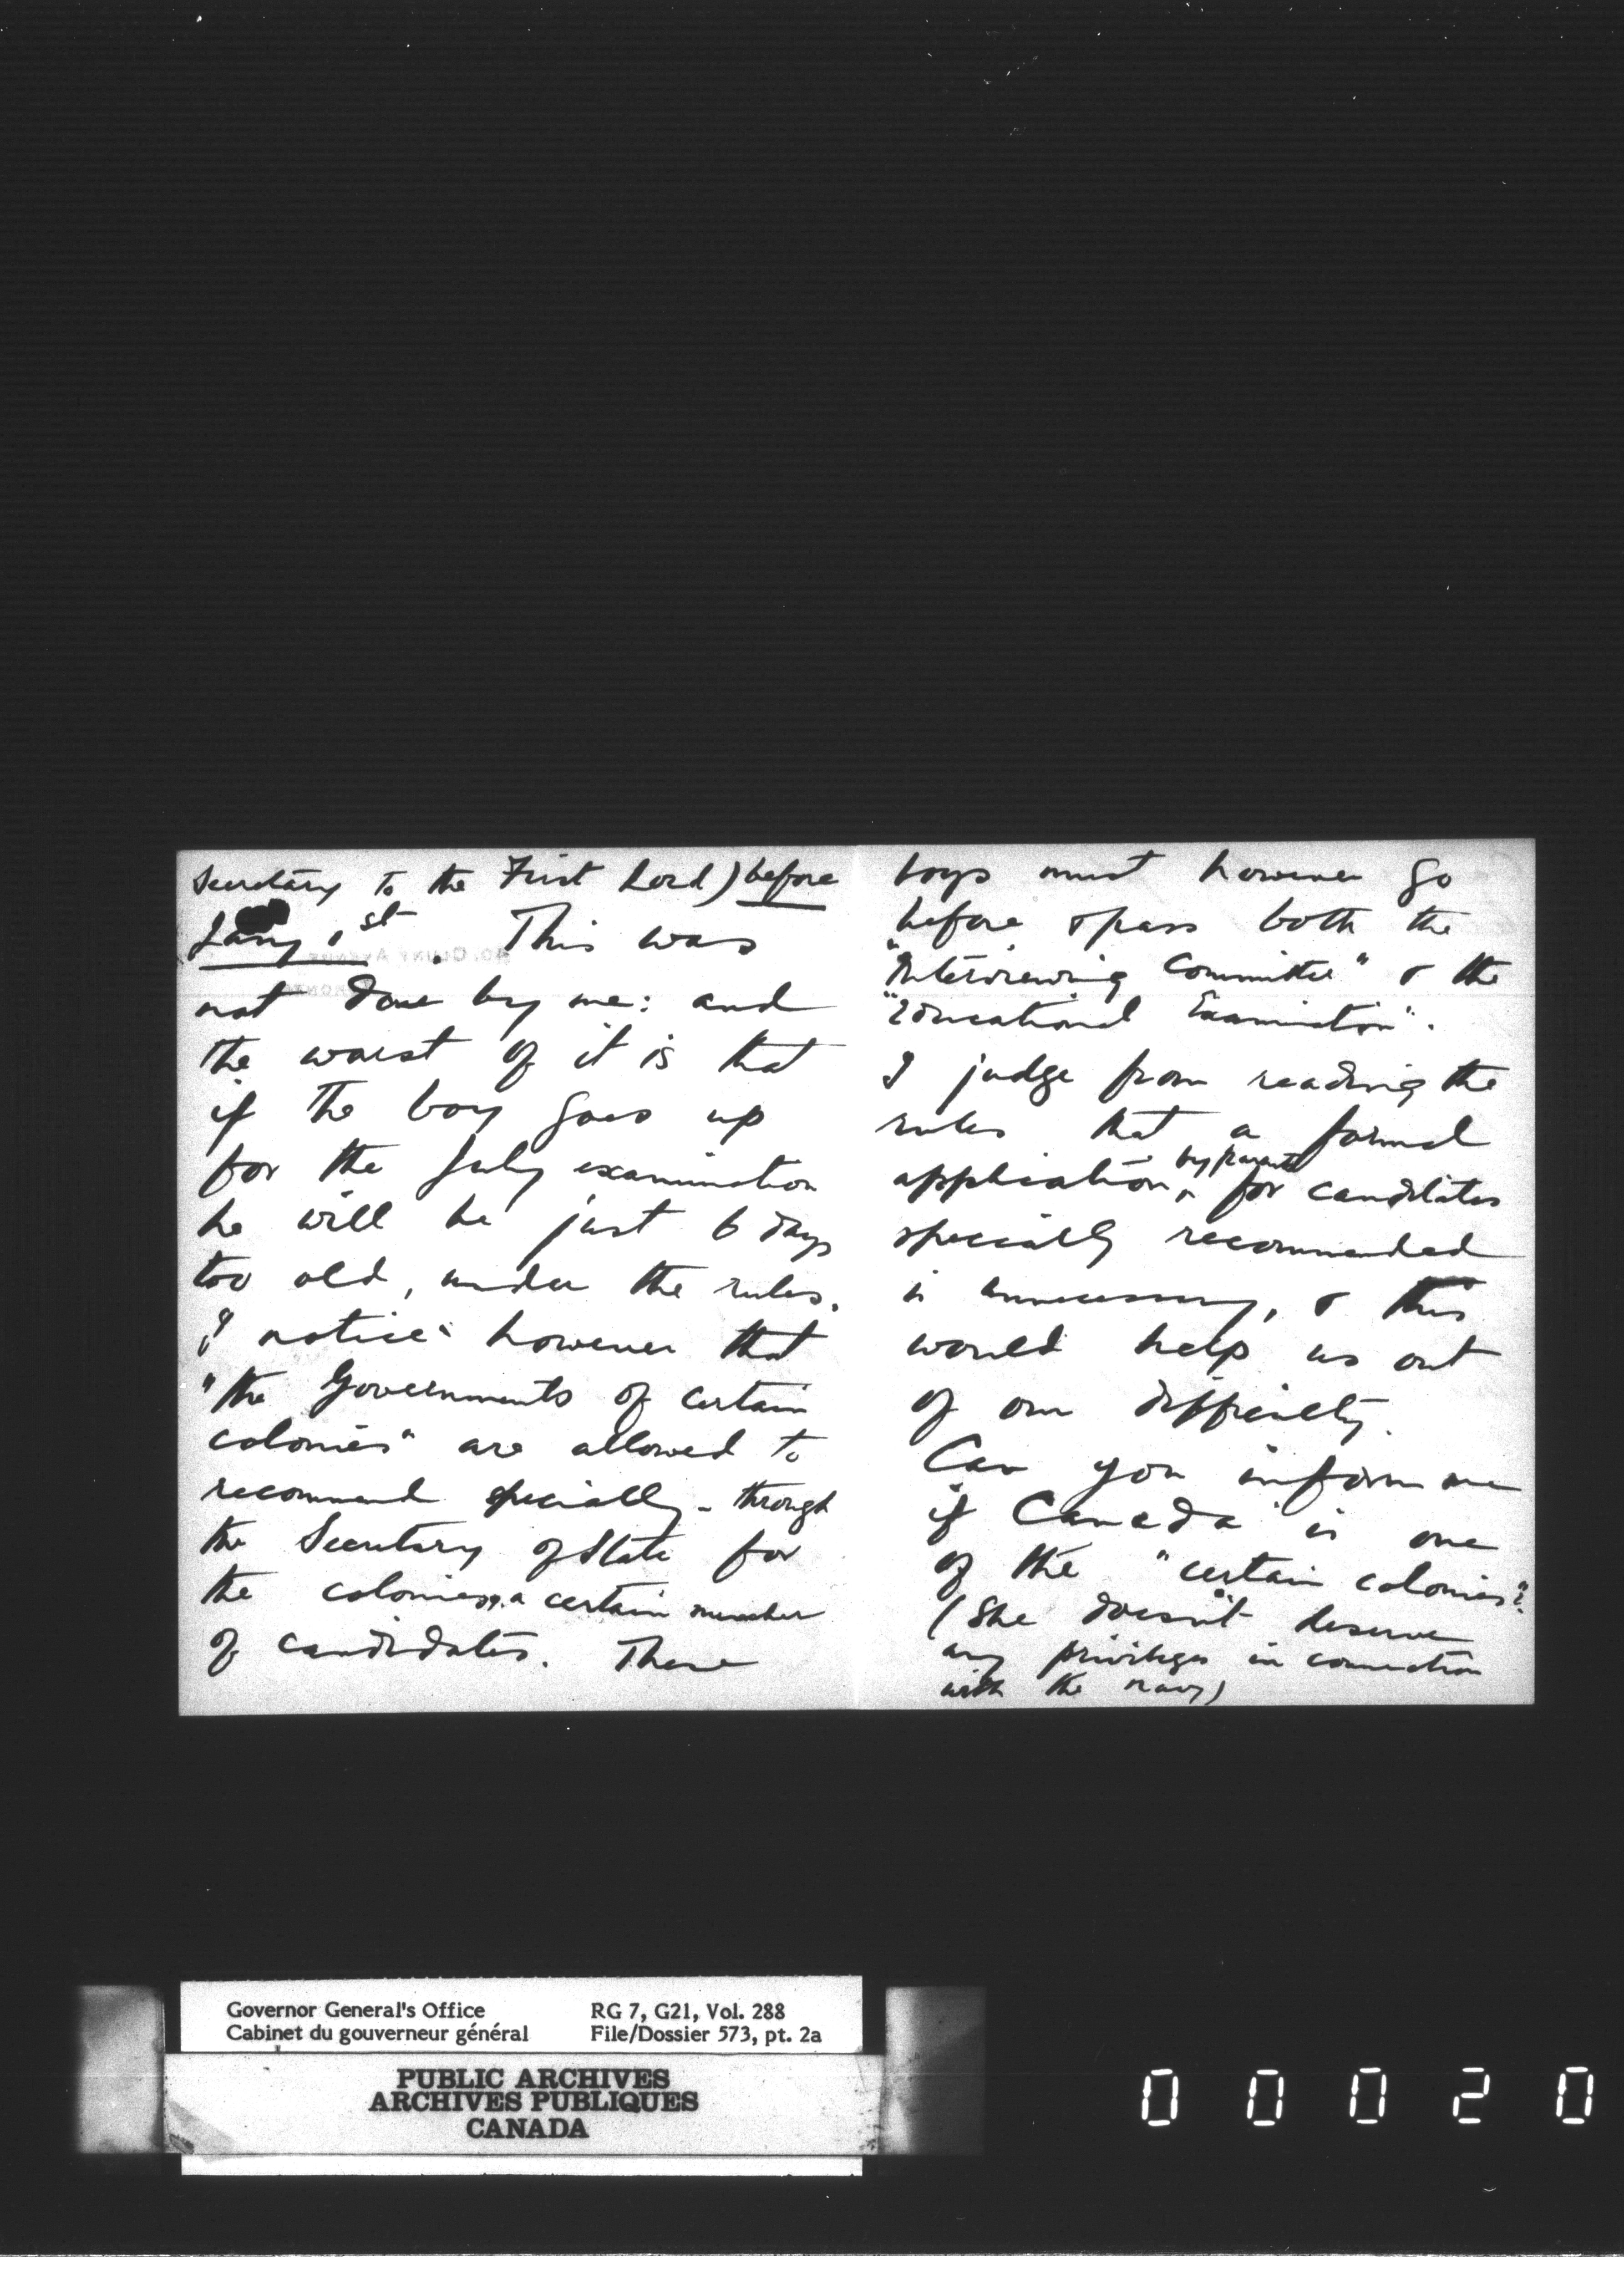 Secretary to the First Lord) before
Jany 1st. This was
not done by me: and
the worst of it is that
if the boy goes up
for the July examination
he will be just 6 days
too old, under the rules.
I notice however that
"the Governments of certain
colonies" are allowed to
recommend specially - through
the Secretary of State for
the colonies, a certain number
of candidates. These
boys must however go
before & pass both the
"Interviewing Committee" & the
"Educational Examination".
I judge from reading the
rules that a formal
application, by parents for candidates
specially recommended
is unnecessary, & this
would help us out
of our difficulty.
Can you inform me
if Canada is one
of the "certain colonies"?
(She doesn't deserve
any privileges in connection
with the navy)
Governor General's Office
Cabinet du gouverneur général
RG 7, G21, Vol. 288
File/Dossier 573, pt. 2a
PUBLIC ARCHIVES
ARCHIVES PUBLIQUES
CANADA
0 0 0 2 0